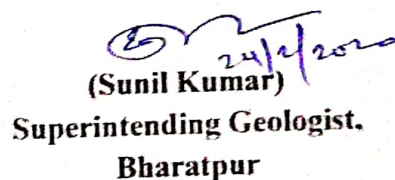 24/2/2020
(Sunil Kumar)
Superintending Geologist.
Bharatpur